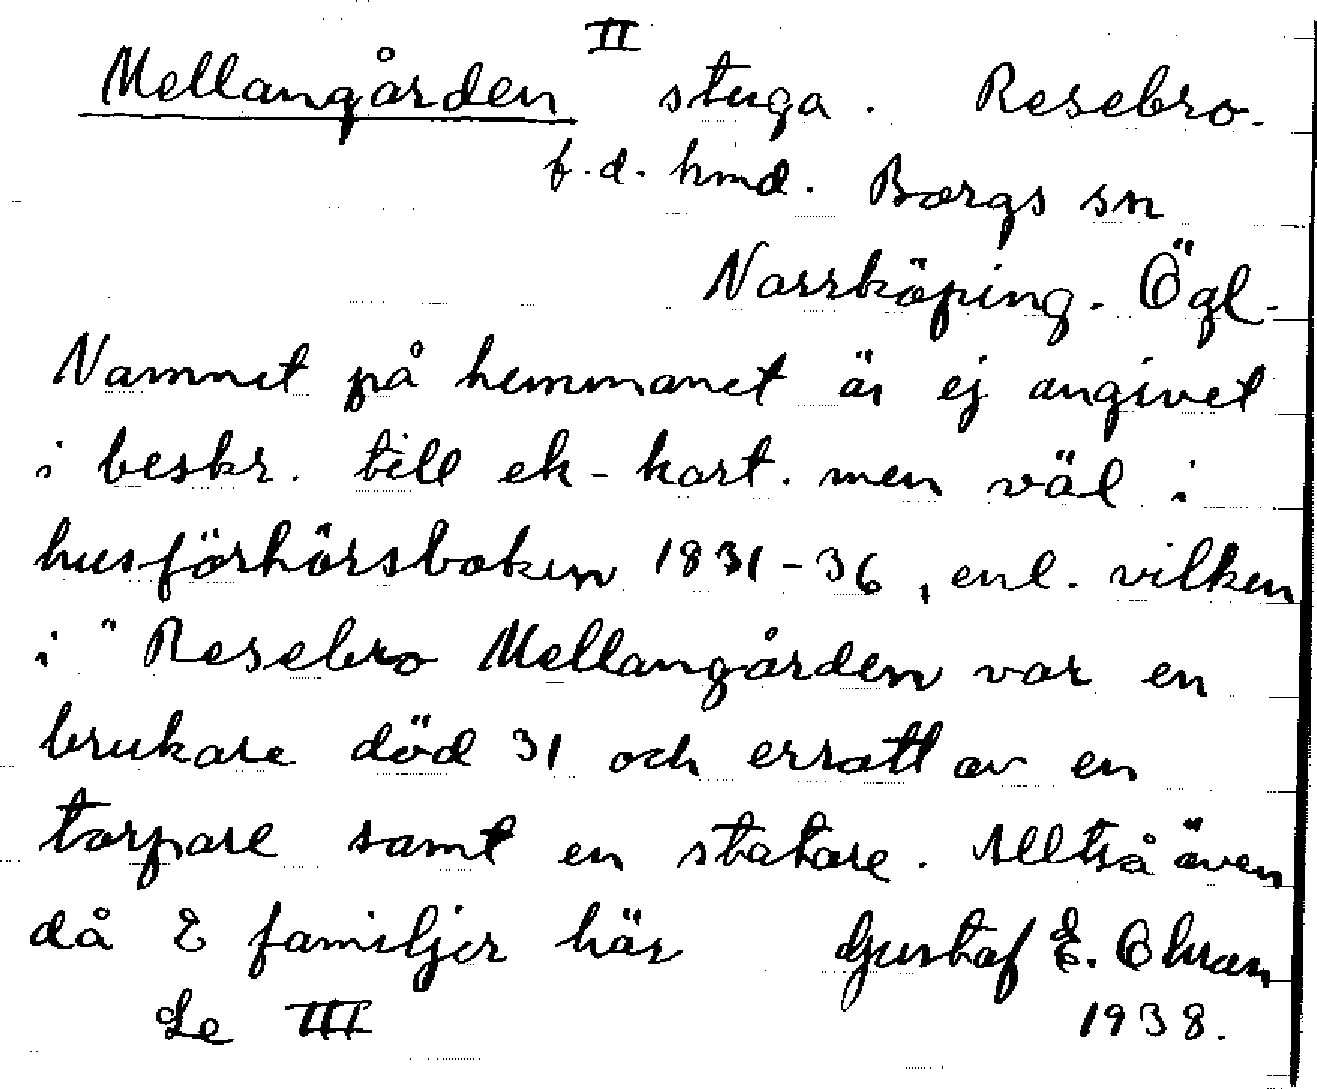 II
Mellangården stuga. Resebro.
f.d. hmd. Borgs sn
Norrköping. Ögl.
Namnet på hemmanet är ej angivet
i beskr. till ek-kart. men väl i
husförhörsboken 1831-36, enl. vilken
i "Resebro Mellangården var en
brukare död 31 och ersatt av en
torpare samt en statare. Alltså även
då 2 familjer här Gustaf E.
Se III 1938.